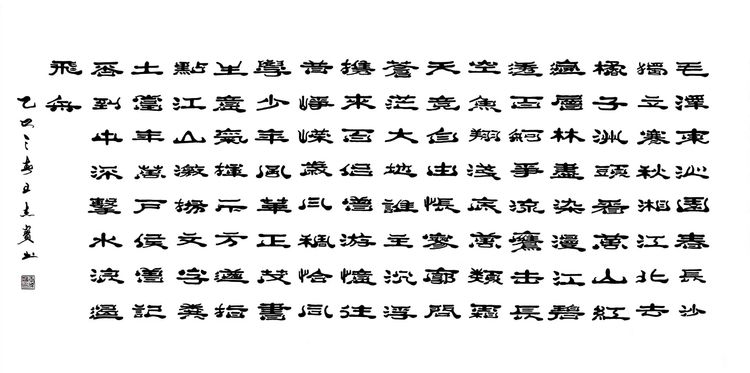 毛澤東沁園春長沙
獨立寒秋湘江北去
橘子洲頭看萬山紅
遍層林盡染漫江碧
透百舸爭流鷹击長
空魚翔淺底萬類霜
天竞自由悵寥廓問
蒼茫大地誰主沉浮
攜來百侣曾游憶往
昔崢嶸歲月稠恰同
學少年風華正茂書
生意氣揮斥方遒指
點江山激揚文字糞
土當年萬戶侯曾記
否到中流擊水浪遏
飛舟
乙巳之春